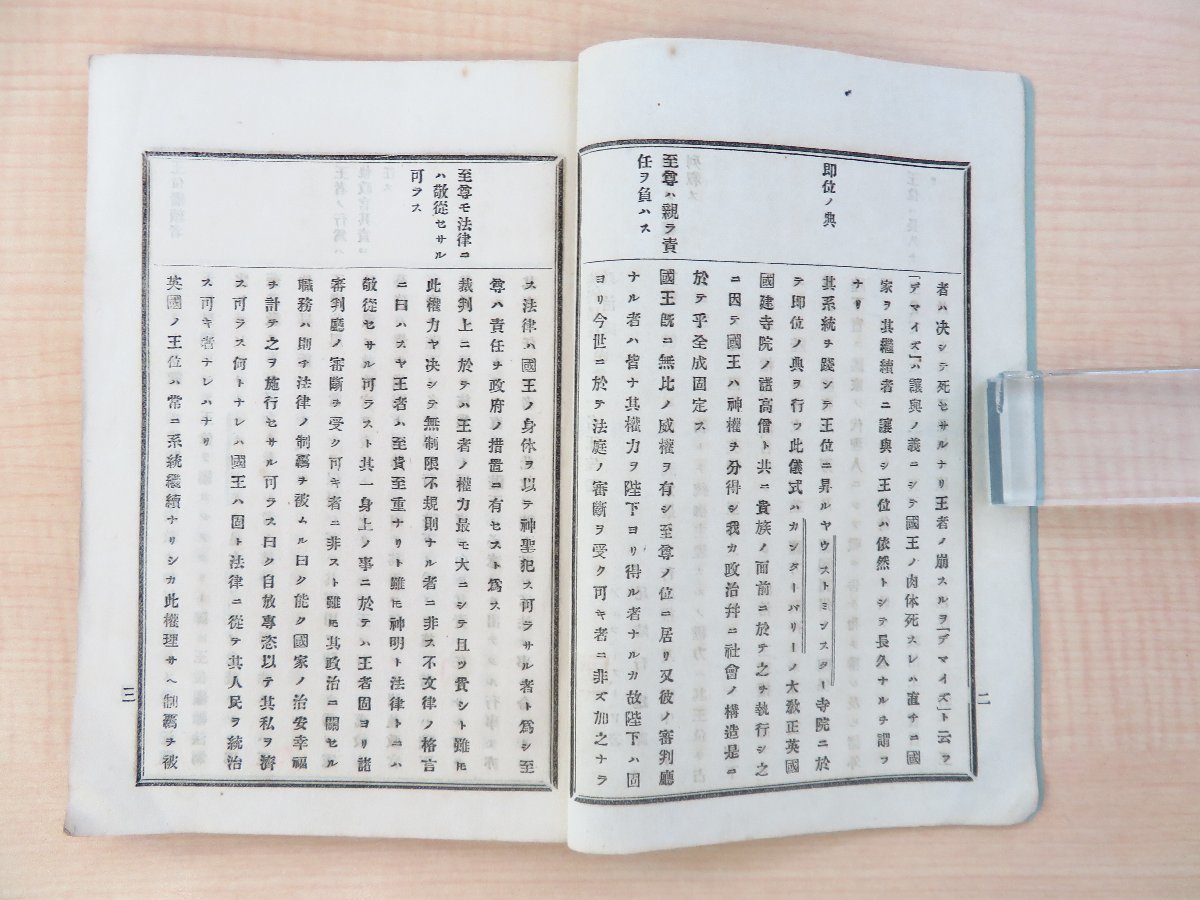 即位ノ典
至尊ハ親ラ責
任ヲ負ハス
者ハ決シテ死セサルナリ王者ノ崩スルヲ「デマイズ」ト云ヲ
「デマイズ」ハ讓與ノ義ニシテ國王ノ肉体死スレハ直チニ國
家ヲ其繼續者ニ讓與シ王位ハ依然トシテ長久ナルヲ謂フ
ナリ
其系統ヲ踐シテ王位ニ昇ルヤウストミンスター寺院ニ於
テ即位ノ典ヲ行フ此儀式ハカンターバリーノ大敎正英國
國建寺院ノ諸高僧ト共ニ貴族ノ面前ニ於テ之ヲ執行シ之
ニ因テ國王ハ神權ヲ分得シ我カ政治幷ニ社會ノ構造是ニ
於テ乎全成固定ス
國王既ニ無比ノ威權ヲ有シ至尊ノ位ニ居リ又彼ノ審判廳
ナル者ハ皆ナ其權力ヲ陛下ヨリ得ル者ナルカ故陛下ハ固
ヨリ今世ニ於テ法庭ノ審斷ヲ受ク可キ者ニ非ズ加之ナラ
二
至尊モ法律ニ
ハ敬從セサル
可ラス
ス法律ハ國王ノ身休ヲ以テ神聖犯ス可ラサル者ト爲シ至
尊ハ責任ヲ政府ノ措置ニ有セスト爲ス
裁判上ニ於テハ王者ノ權力最モ大ニシテ且ツ貴シト雖𪜈
此權力ヤ決シテ無制限不規則ナル者ニ非ス不文律ノ格言
ニ曰ハスヤ王者ハ至貴至重ナリト雖𪜈神明ト法律トニハ
敬從セサル可ラスト其一身上ノ事ニ於テハ王者固ヨリ諸
審判廳ノ審斷ヲ受ク可キ者ニ非スト雖𪜈其政治ニ關セル
職務ハ則チ法律ノ制羈ヲ被ムル曰ク能ク國家ノ治安幸福
ヲ計テ之ヲ施行セサル可ラス曰ク自放專恣以テ其私ヲ濟
ス可ラス何トナレハ國王ハ固ト法律ニ從テ其人民ヲ統治
ス可キ者ナレハナリ
英國ノ王位ハ常ニ系統繼續ナリシカ此權理サヘ制羈ヲ被
三